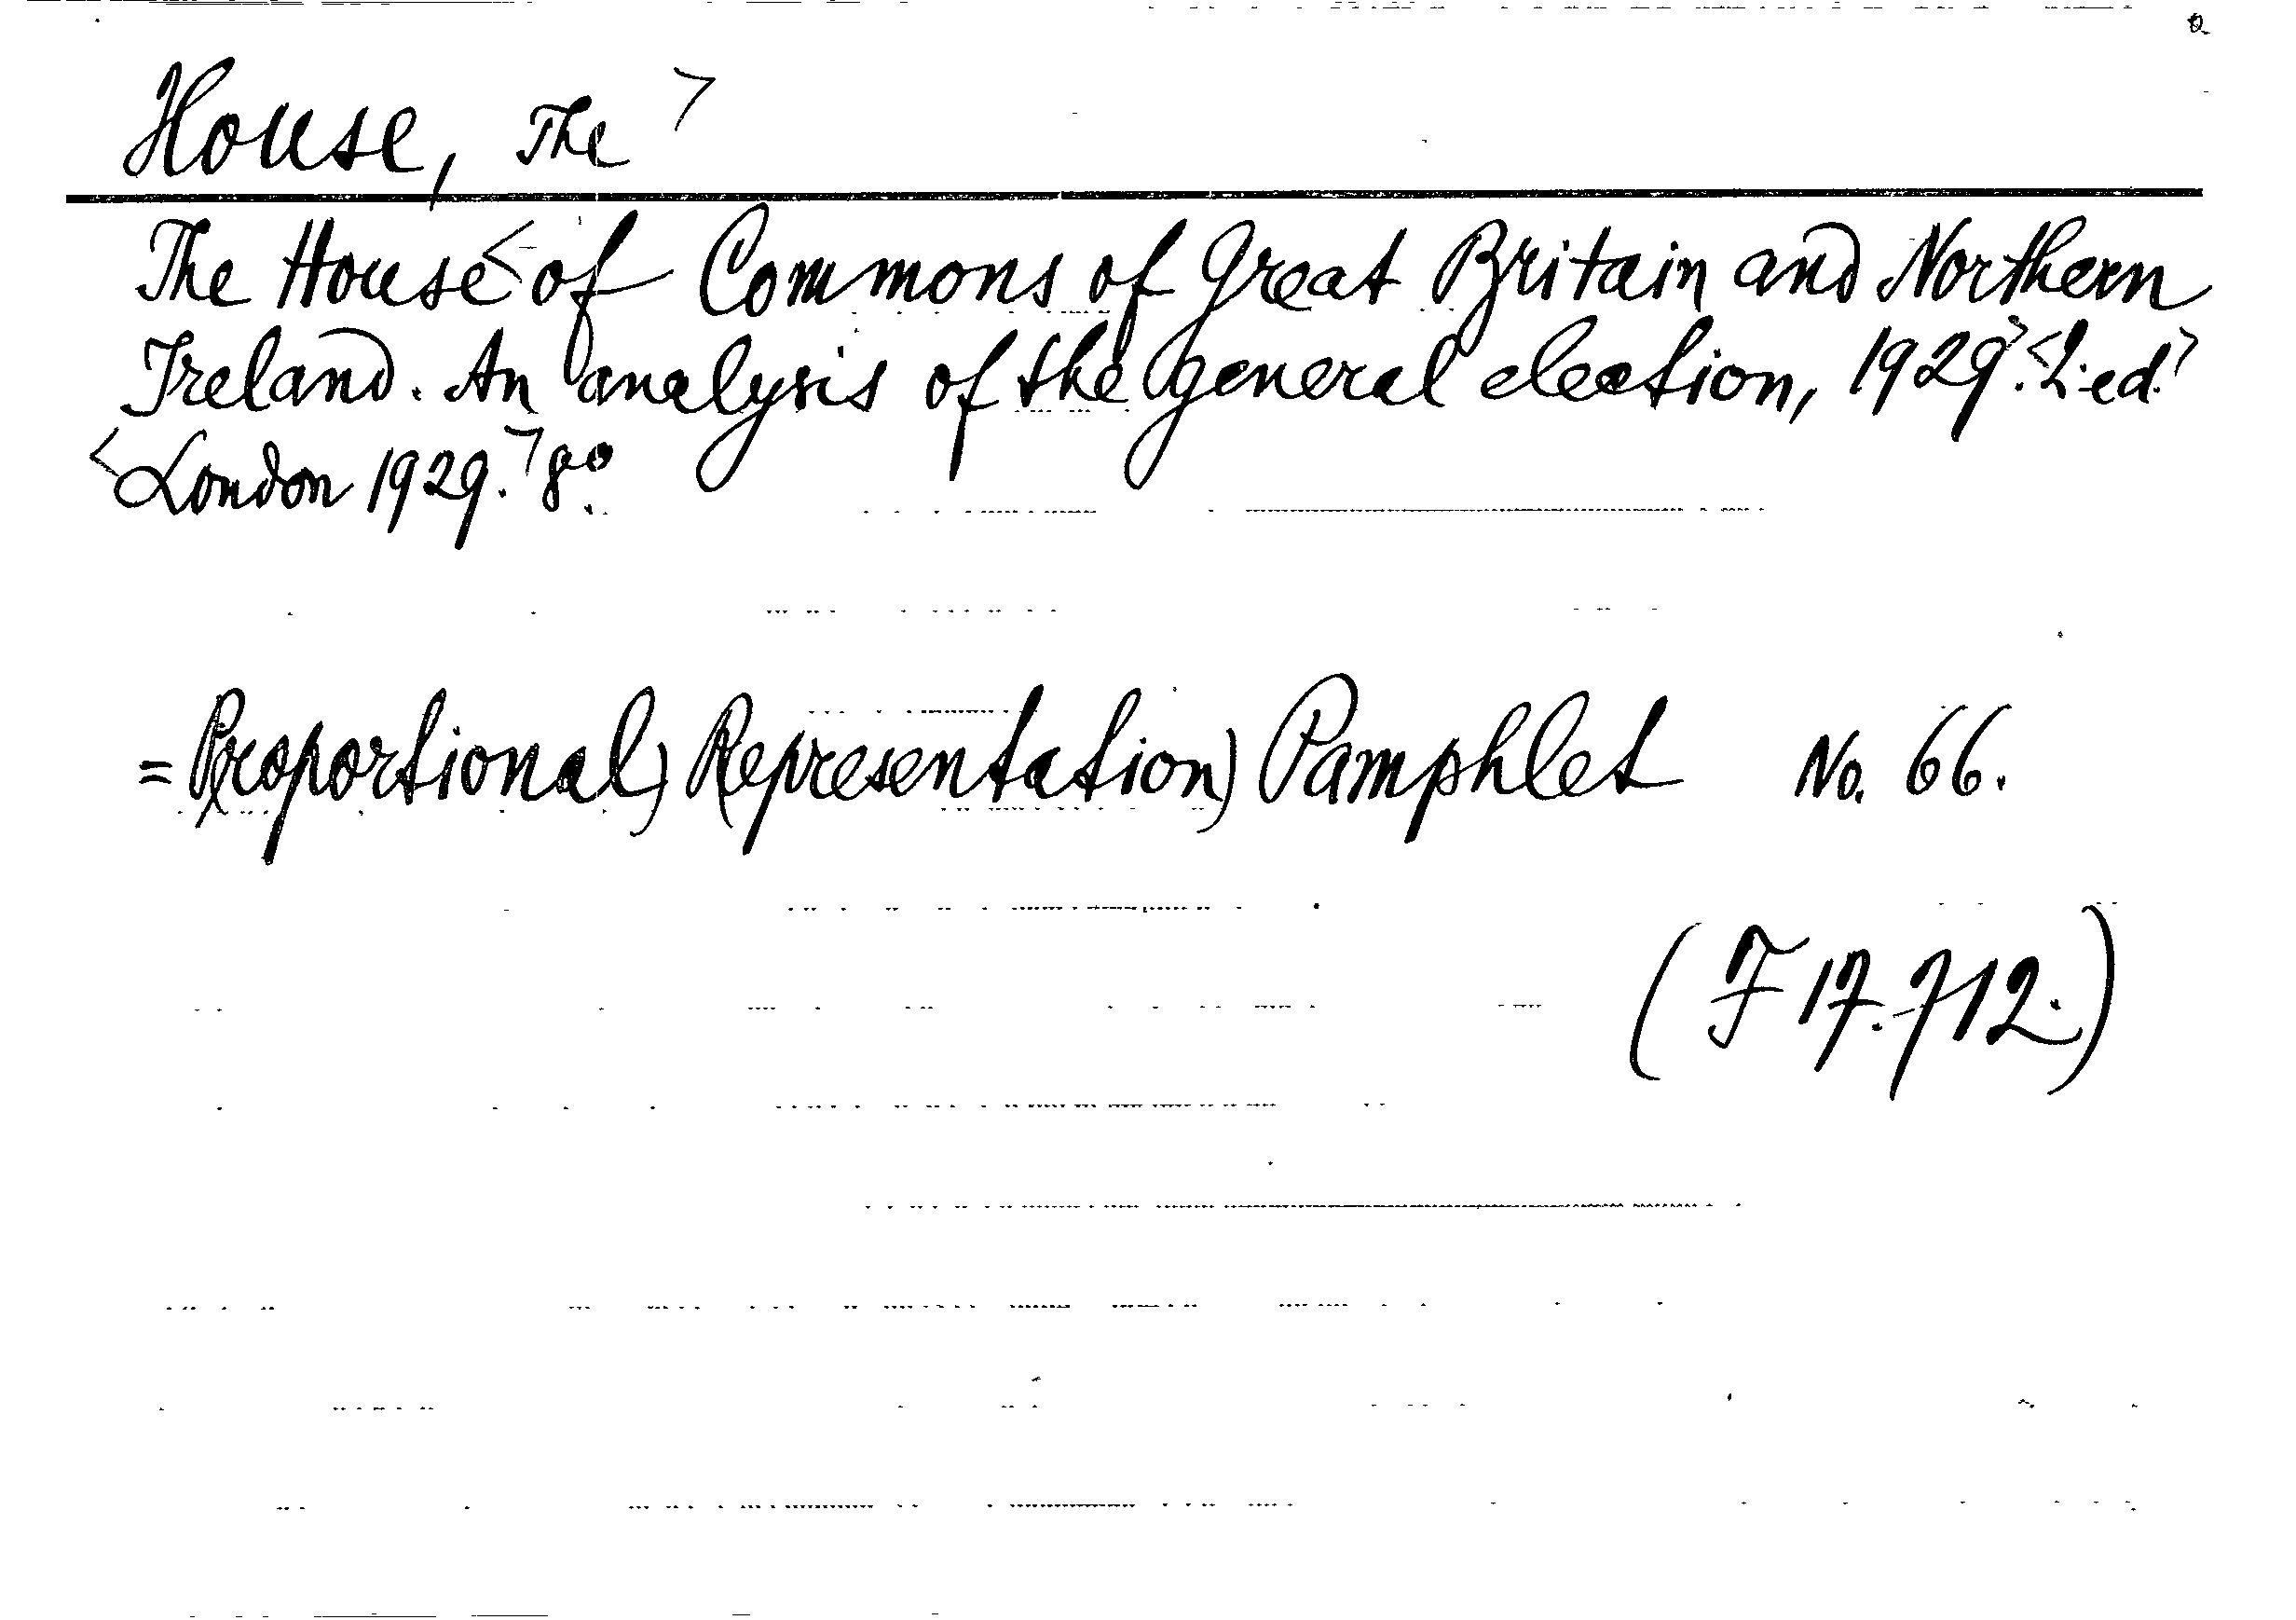 House, The >
The House < of Commons of Great Britain and Northern
Ireland. An analysis of the general election, 1929.> <2. ed.>
<London 1929.> 8°.
= P(roportional) R(epresentation) Pamphlet No. 66.
(F 17.712.)